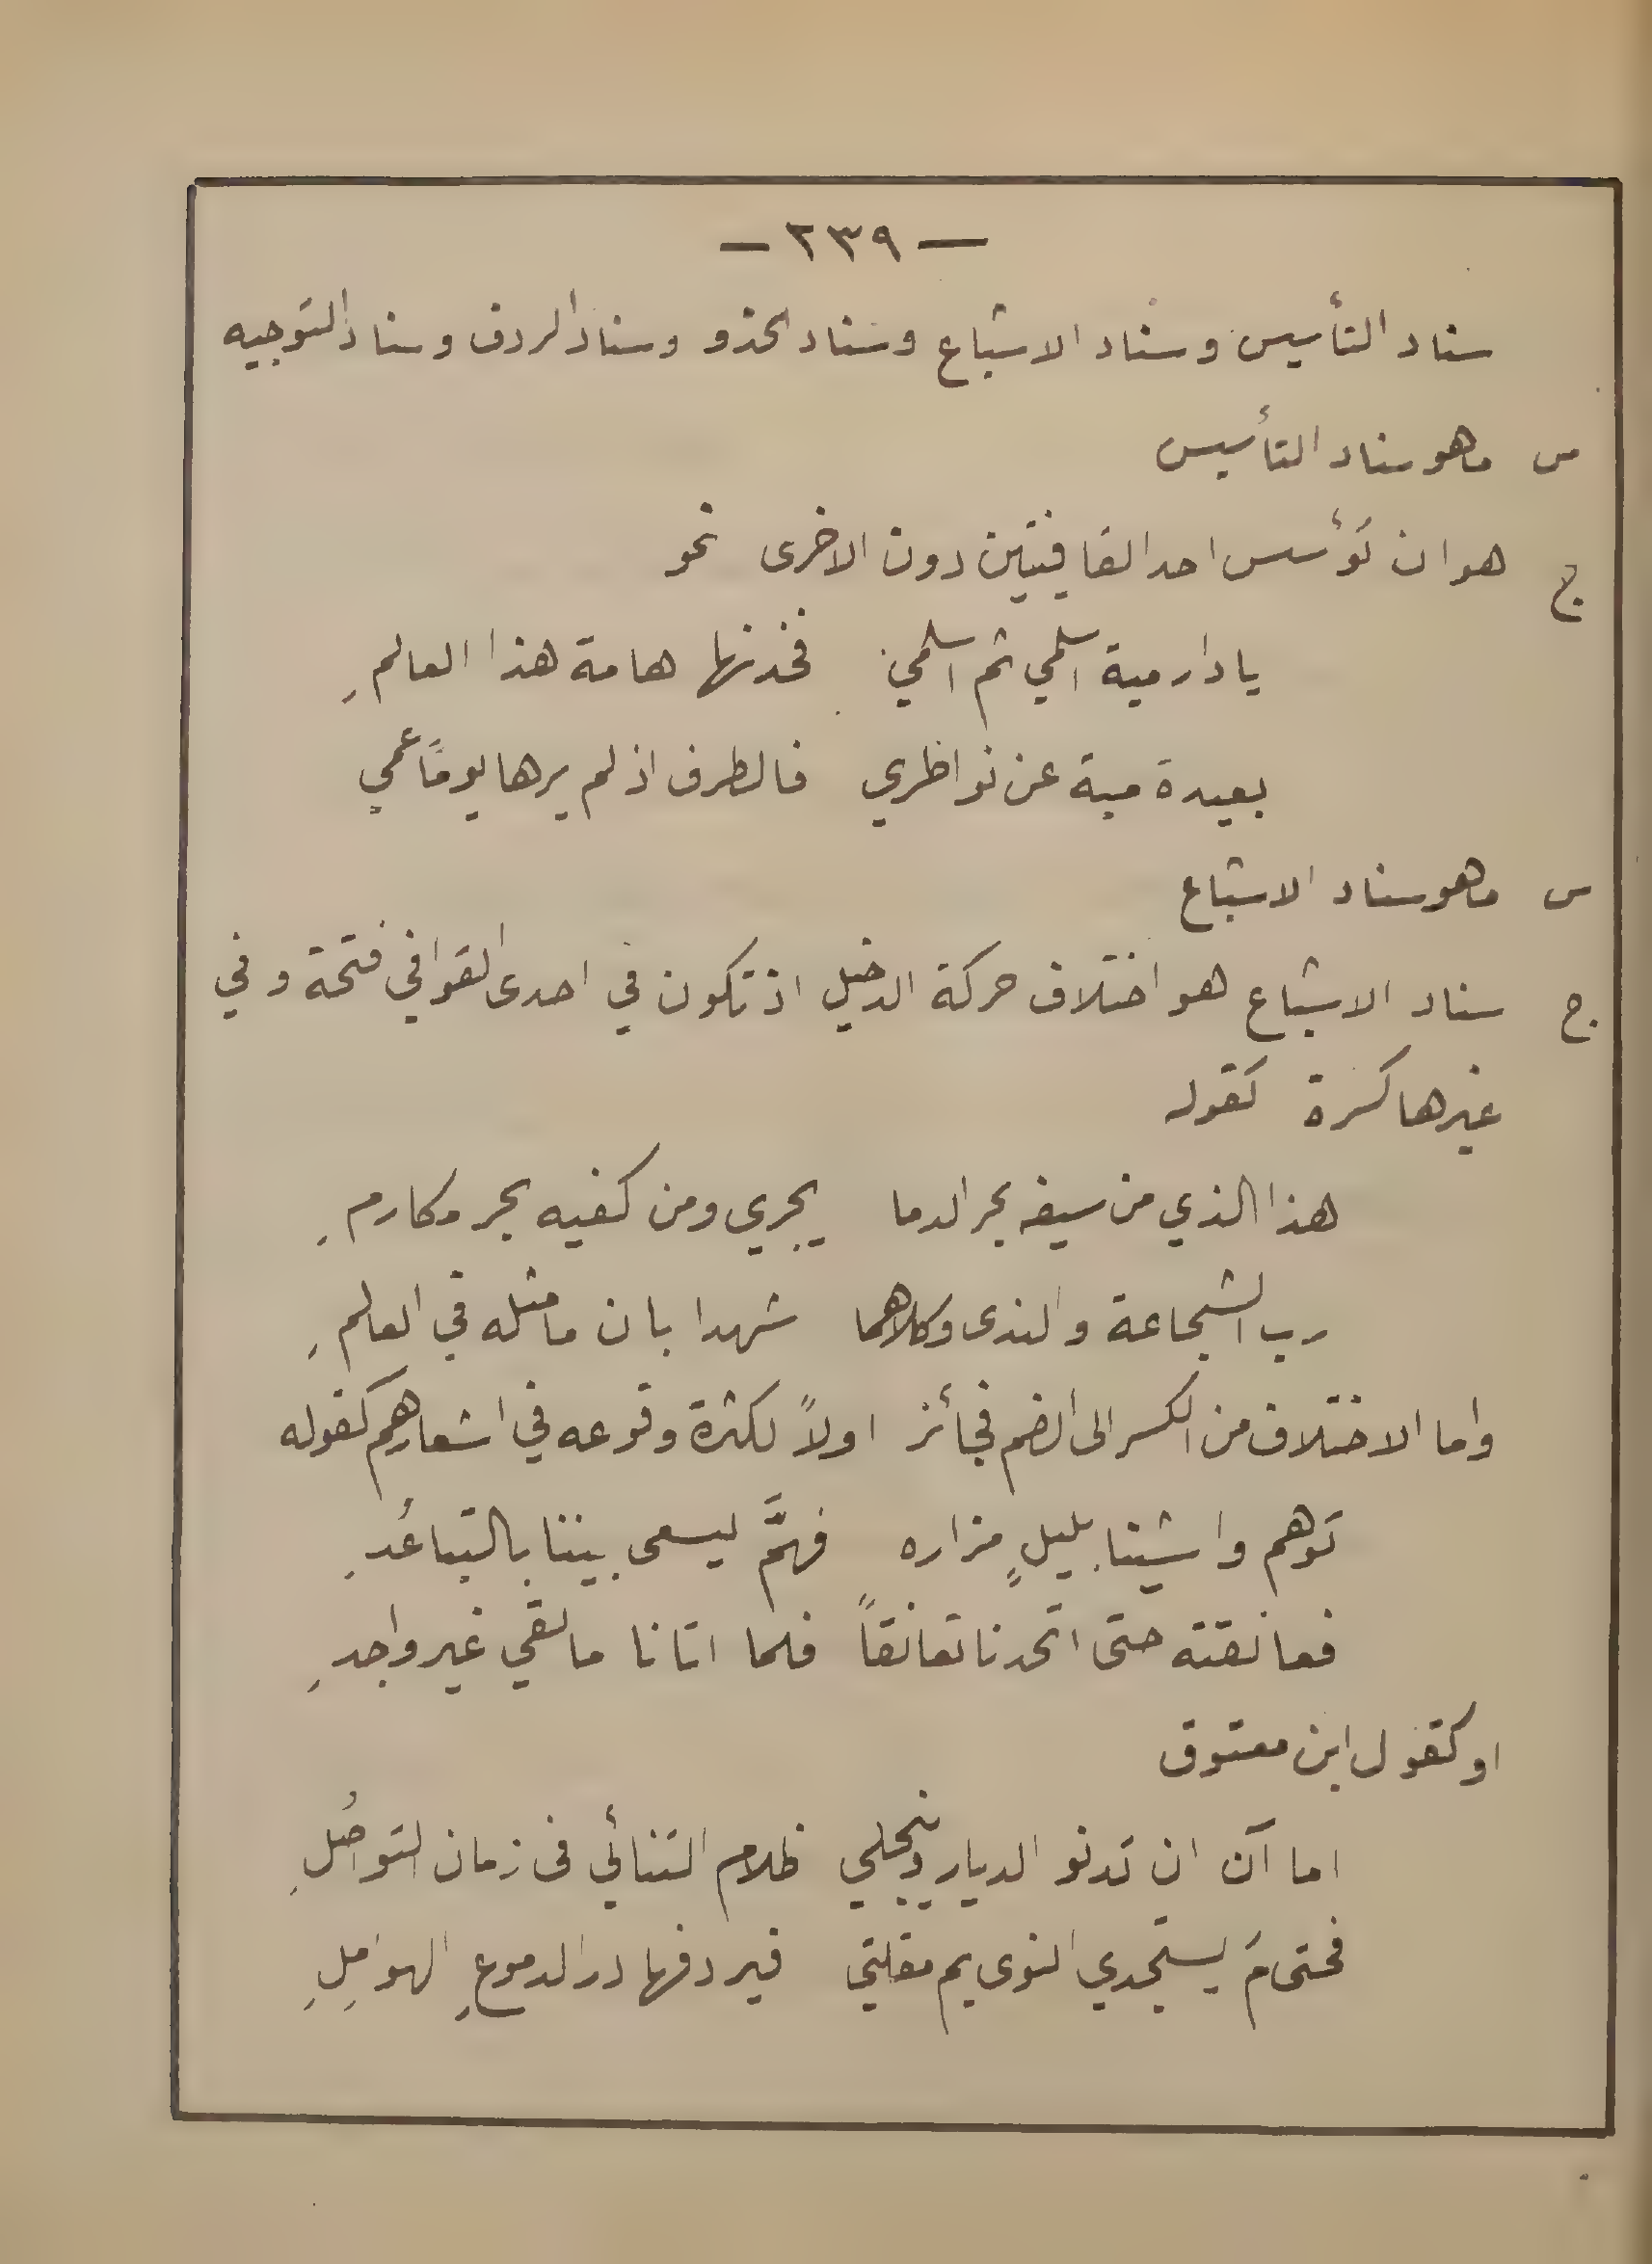 — ٢٣٩ —
سناد التأسيس وسناد الاشباع وسناد الحذو وسناد الردف وسناد التوجيه
س ماهو سناد التأسيس
ج هو ان تؤسس احد القافيتين دون الاخرى نحو
يا دار مية اسلمي ثم اسلمي فخندنها هامة هذا العالمِ
بعيدة مية عن نواظري فالطرف اذ لم يرها يومًا عمي
س ماهو سناد الاشباع
ج سناد الاشباع هو اختلاف حركة الدخيل اذ تكون في احدى القوافي فتحة وفي
غيرها كسرة كقوله
هذا الذي من سيفه بحر الدما يجري ومن كفيه بحر مكارمِ
رب الشجاعة والندى وكلاهما شهدا بان ما مثله في العالمِ
واما الاختلاف من الكسر الى الضم فجائز اولاً لكثرة وقوعه في اشعارهم كقوله
توهم واشينا بليلٍ مزاره فهمَّ ليسعى بيننا بالتباعُدِ
فعانقته حتى اتحدنا تعانقاً فلما اتانا ما لقي غير واجدِ
او كقول ابن معتوق
اما آن ان تدنو الديار وينجلي ظلام التنائي فى زمان التواصُلِ
فحتى مَ يستجدي النوى يم مقلتي فيردفها در الدموعِ الهوامِلِ